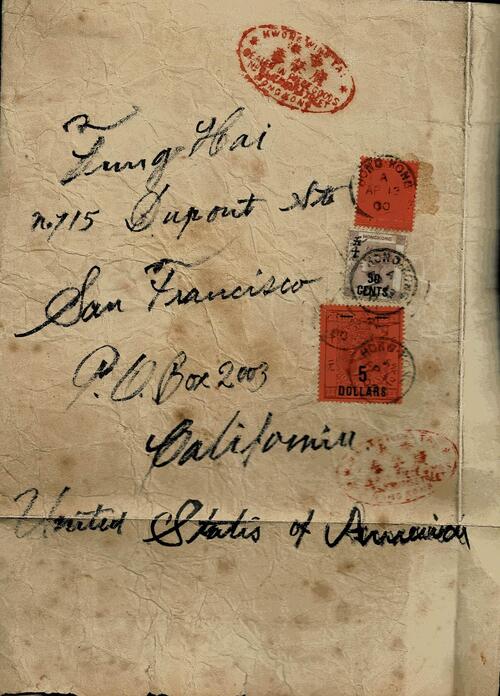 KWONG WING TAI
HONG KONG
Fung Hai
no. 715 Dupont Str
San Francisco
P.O. Box 2003
California
United States of America
HONG KONG
A
AP 13
00
HONGKONG
HONG KONG
A
30
CENTS
HONG KONG
5
DOLLARS